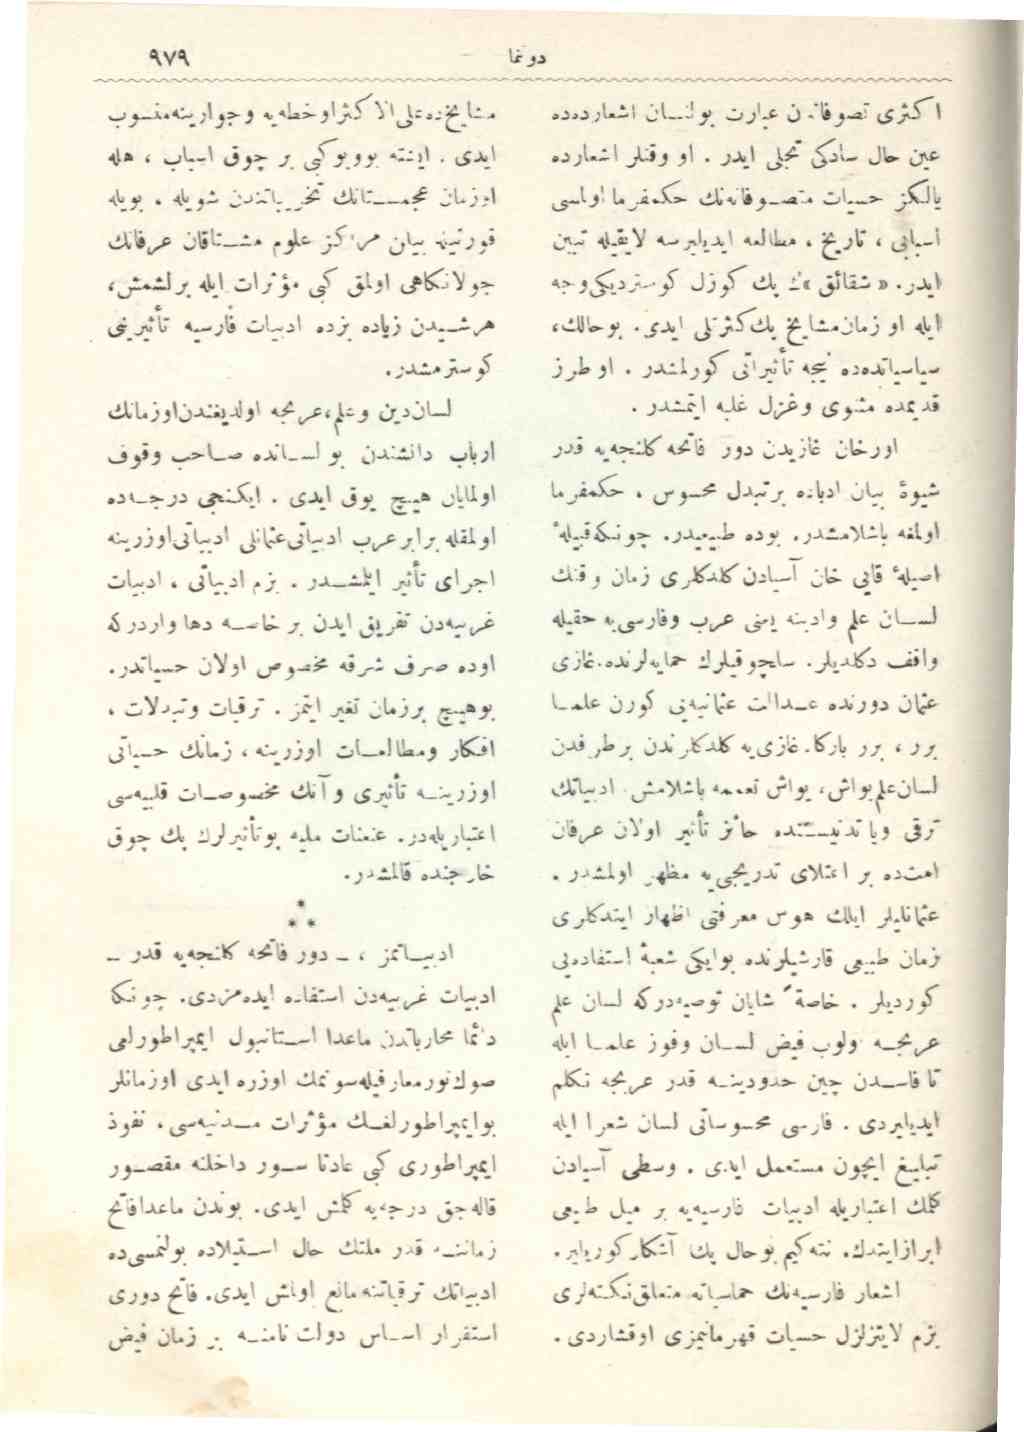 دونما
٩٧٩
اكثری تصوفاتدن عبارت بولنـان اشعارده‌ده
عين حال سادكی تجلی ايدر . او وقتلر اشعارده
يالكز حسيات متصـوفانه‌نك حكمفرما اولمسی
اسبابی ، تاريخ ، مطالعه ايديليرسه لايقيله تبين
ايدر. « شقائق » ك پك كوزل كوسترديكی وجه
ايله او زمان مشايخ پك كثرتلی ايدی. بوحالك،
سياسياتده‌ده نيجه تأثيراتی كورلمشدر . او طرز
قديمده مثنوی وغزل غلبه ايتمشدر .
اورخان غازيدن دور فاتحه كلنجه‌يه قدر
شيوۀ بيان ادباده برتبدل محسوس ، حكمفرما
اولمغه باشلامشدر. بوده طبيعيدر. چونكه قبيلهٔ
اصيلهٔ قايی خان آسيادن كلدكلری زمان وقتك
لســان علم وادبنه يعنی عرب وفارسی‌يه حقيله
واقف دكلديلر. سلچوقيلرك حمايه‌لرنده.غازی
عثمان دورنده عـدالت عثمانيه‌يی كورن علمـا
برر ، برر باركاه غازی‌يه كلدكلرندن برطرفدن
لسان علم يواش، يواش تعممه باشلامش. ادبياتك
ترقی ويا تدنيسـنده حائز تأثير اولان عرفان
امتده بر اعتلای تدريجی‌يه مظهر اولمشدر .
عثمانليلر ايلك هوس معرفتی اظهار ايتدكلری
زمان طبيعی قارشيلرنده بوايكی شعبۀ استفاده‌يی
كورديلر . خاصةً شايان توصيه‌دركه لسان علم
عربجـه اولوب فيض لسـان وفوز علمـا ايله
تا فاسـدن چين حدودينـه قدر عربجه تكلم
ايديليردی . فارسی محسوساتی لسان شعرا ايله
تبليغ ايچون مستعمل ايدی . وسطی آسيادن
كلمك اعتباريله ادبيات فارسيه‌يه بر ميل طبيعی
ابراز ايتدك. نته‌كيم بوحال پك آشكار كوريلير.
اشعار فارسيه‌نك حماسياته متعلق نكته‌لری
بزم لايتزلزل حسيات قهرمانيمزی اوقشاردی .
مشايخده علی الاكثر اوخطه‌يه وجوارينه منسوب
ايدی . ايشته بوويوكبی بر چوق اسباب ، هله
اوزمان عجمسـتانك تخريباتندن شويله ، بويله
قورتيله بيلن مراكز علوم مشـتاقان عرفانك
جولانكاهی اولمق كبی مؤثرات ايله برلشمش،
هرشـيدن زياده بزده ادبيات فارسيه تأثيرينی
كوسترمشدر.
لسان دين وعلم،عربجه اولديغندن اوزمانك
ارباب دانشندن بو لسـانده صـاحب وقوف
اولمايان هيـچ يوق ايدی . ايكنجی درجـه‌ده
اولمقله برابر عرب ادبياتی عثمانلی ادبياتی اوزرينه
اجرای تأثير ايلمشـدر . بزم ادبياتی ، ادبيات
غربيه‌دن تفريق ايدن بر خاصـه دها واردركه
اوده صرف شرقه مخصوص اولان حسياتدر.
بوهيـچ برزمان تغير ايتمز . ترقيات وتبدلات ،
افكار ومطالعـات اوزرينه ، زمانك حسـياتی
اوزرينـه تأثيری وآنك مخصوصـات قلبيه‌سی
اعتباريله‌در. عنعنات مليه بوتأثيرلرك پك چوق
خارجنده قالمشدر.
* * *
ادبيـاتمز ، ـ دور فاتحه كلنجه‌يه قدر ـ
ادبيات غربيه‌دن استفاده ايده‌مزدی. چونكه
دائما محارباتدن ماعدا اسـتانبول ايمپراطورلغی
صوك نور معارفيله سونمك اوزره ايدی اوزمانلر
بوايمپراطورلغـك مؤثرات مـدنيه‌سی، نفوذ
ايمپراطوری كبی عادتا سـور داخلنه مقصـور
قاله‌جق درجه‌يه كلمش ايدی. بوندن ماعدا فاتح
زماننـه قدر ملتك حال اسـتيلاده بولنمسی‌ده
ادبياتك ترقياتنه مانع اولمش ايدی. فاتح دوری
استقرار اسـاس دولت نامنـه بر زمان فيض